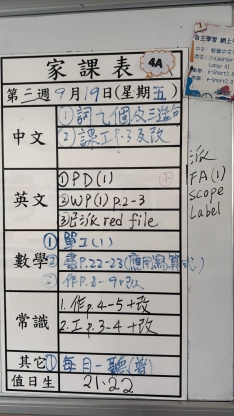 家課表 4A
第三週9月19日(星期五)
中文
①詞九個及三造句
②課工P.3及改
英文
①PD(1)
②WP(1) p.2-3
③派 red file
數學
①單工(1)
②書p.22-23(應用寫算式)
③作p.8-9+改
常識
1.作p.4-5+改
2.工p.3-4+改
其它
①每日一聽(普)
值日生
21.22
派
FA(1)
scope
Label
自主學習 網上